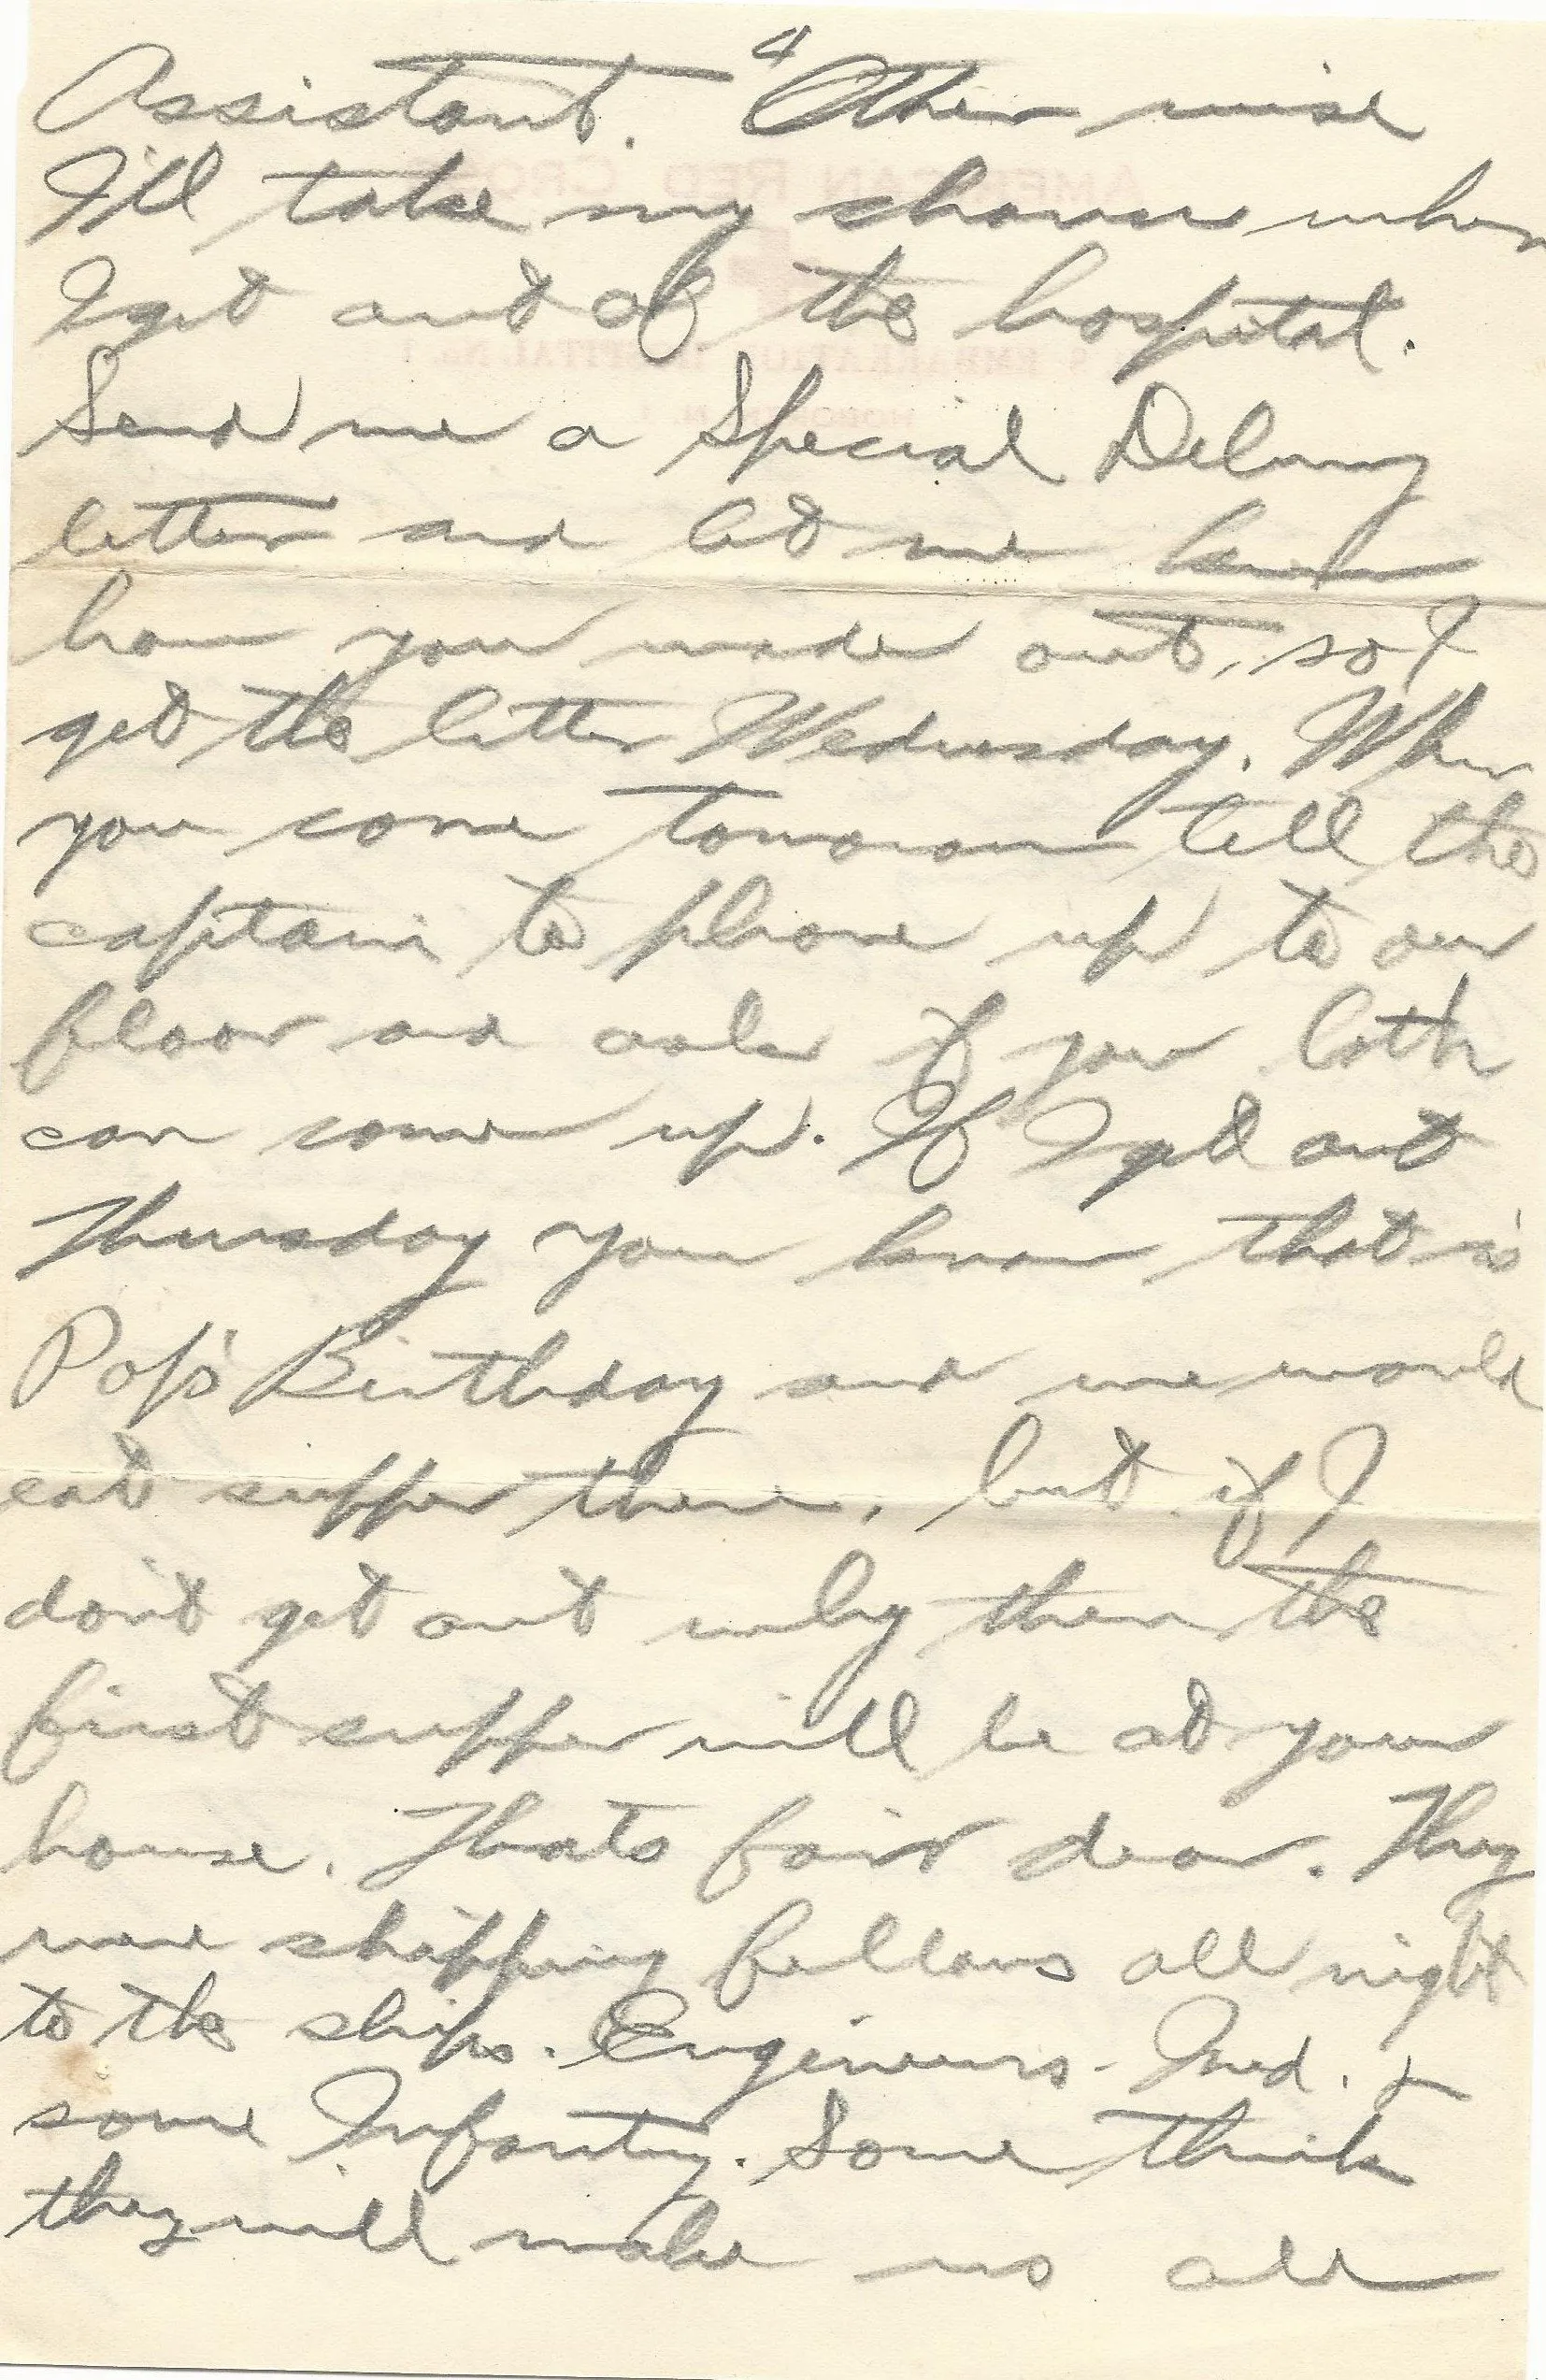 4
Assistant. Other wise
I'll take my chances when
I get out of the hospital.
Send me a Special Delivery
letter and let me know
how you made out, so I
get the letter Wednesday. When
you come tomorrow tell the
captain to phone up to our
floor and ask if you both
can come up. If I get out
Thursday you know that is
Pop's Birthday and we would
eat supper there, but if I
don't get out why then the
first supper will be at your
house. Thats fair dear. They
were shipping fellows all night
to the ships. Engineers - Med. &
some Infantry. Some think
they will make us all
AMERICAN RED CROSS
EMBARKATION HOSPITAL No. 1